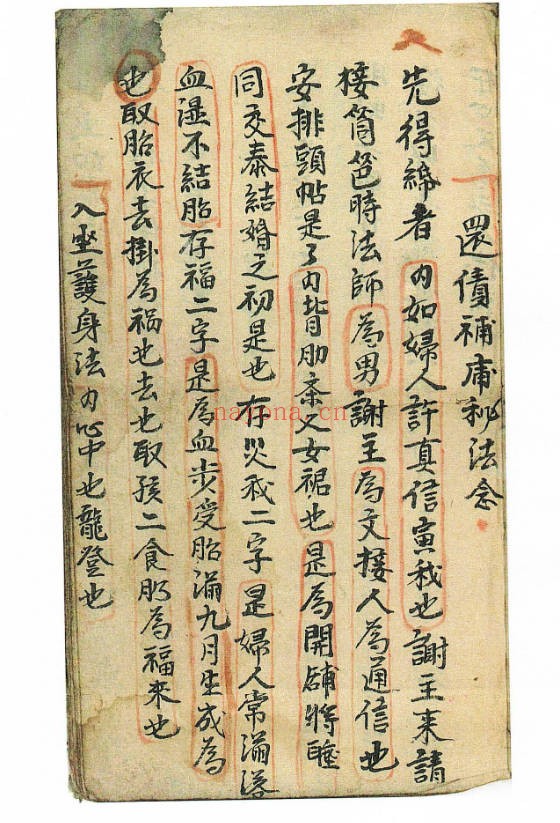 還債補庫秘法念
先得綿者內如婦人許真信寅我也謝主來請
接筒筶時法師為男謝主為文接人為通信也
安排頭帖是了內背肋条又女裙也是為開鋪將睡
同交泰結婚之初是也存災我二字是婦人常漏落
血湿不結胎存福二字是為血步受胎滿九月生成為
也取胎衣去掛為禍也去也取孩二食肠為福來也
入坐護身法內心中也龍登也
nayona.cn